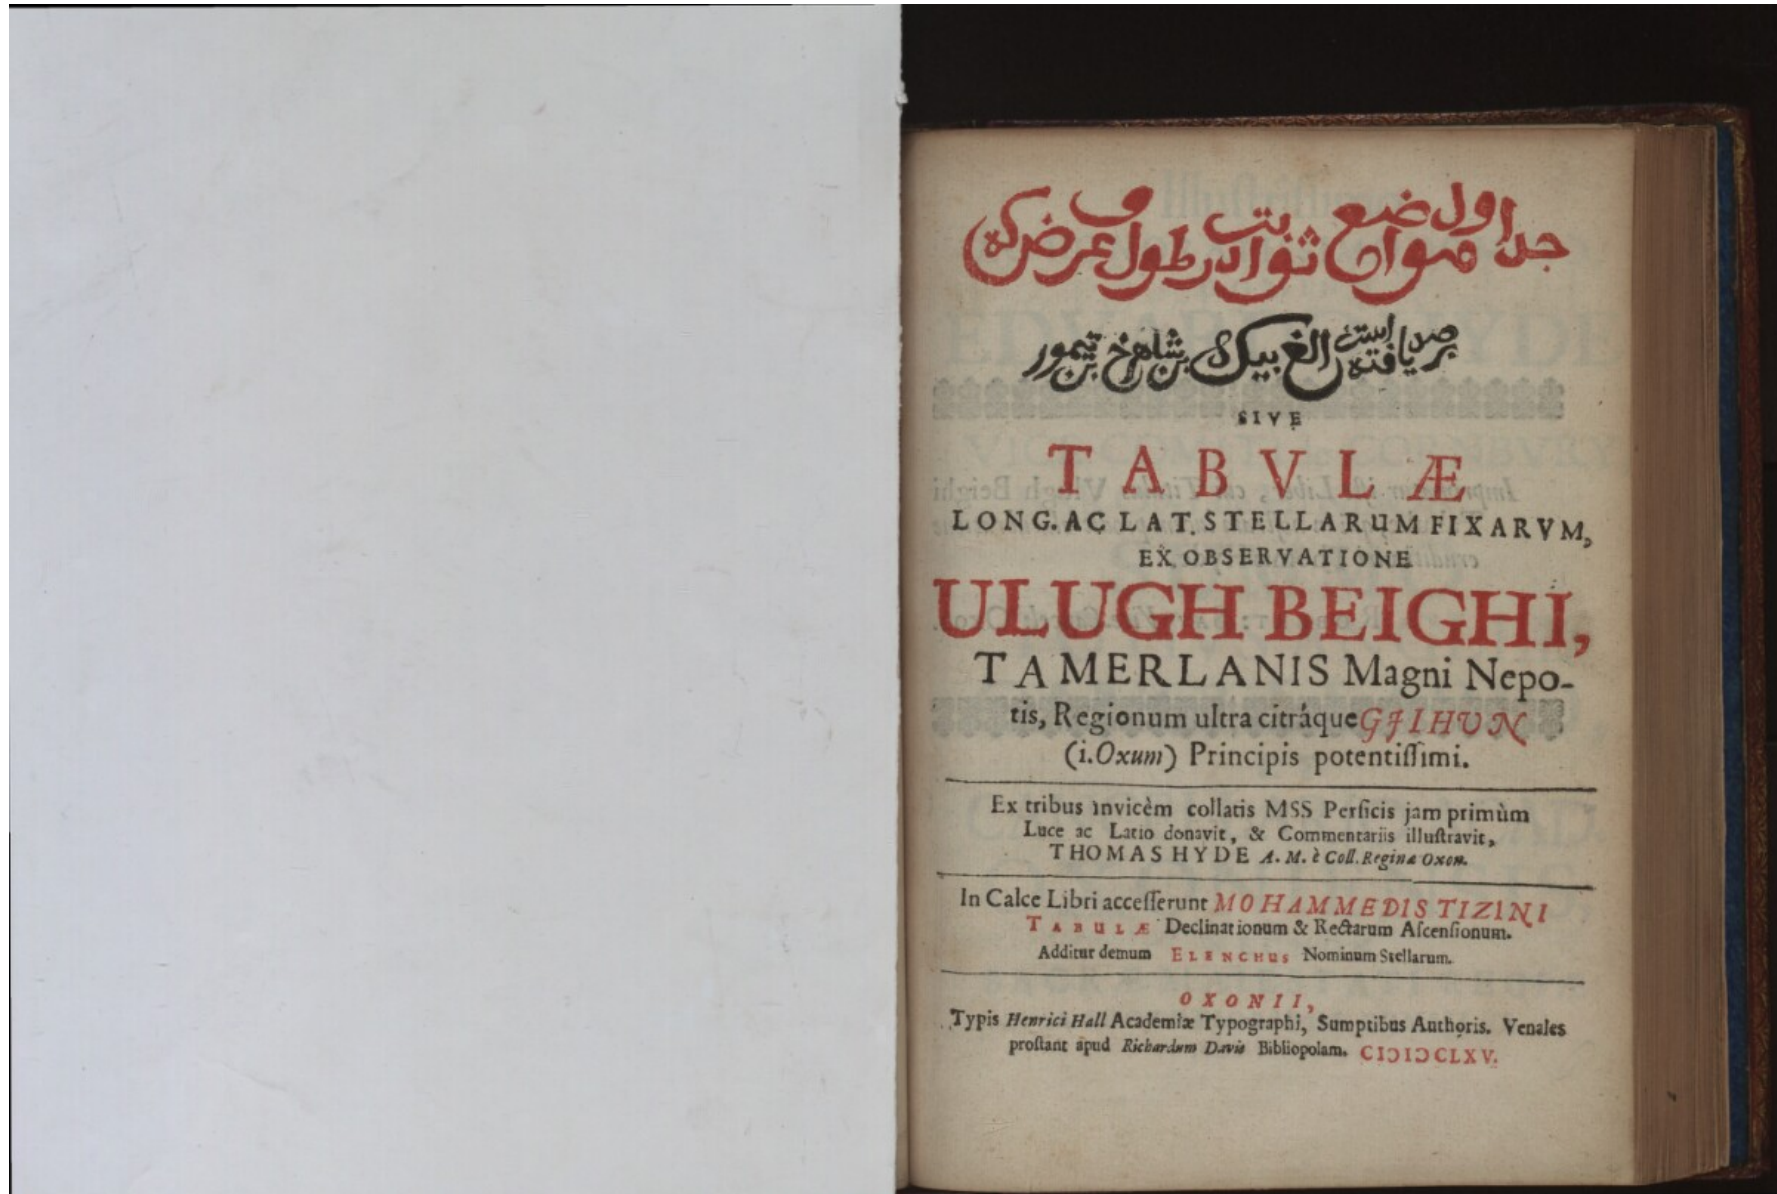 جداول مواضع ثوابت در طول و عرض که
برصد یافته است الغ بیک بن شاهرخ بن تیمور
SIVE
TABVLÆ
LONG. AC LAT. STELLARUM FIXARVM,
EX OBSERVATIONE
ULUGH BEIGHI,
TAMERLANIS Magni Nepo-
tis, Regionum ultra citráque GJIHUN
(i. Oxum) Principis potentiſſimi.
Ex tribus invicèm collatis MSS Perſicis jam primùm
Luce ac Latio donavit, & Commentariis illuſtravit,
THOMAS HYDE A. M. è Coll. Reginæ Oxon.
In Calce Libri acceſſerunt MOHAMMEDIS TIZINI
TABULÆ Declinationum & Rectarum Aſcenſionum.
Additur demum ELENCHUS Nominum Stellarum.
OXONII,
Typis Henrici Hall Academiæ Typographi, Sumptibus Authoris. Venales
proſtant apud Richardum Davis Bibliopolam. CIↃIↃCLXV.